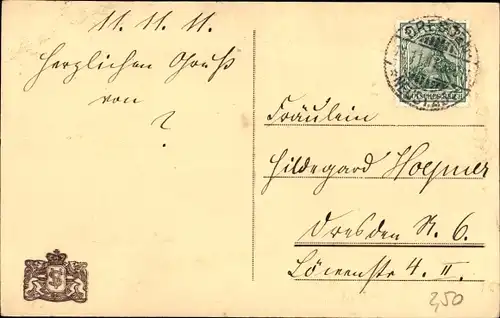 11. 11. 11.
Herzlichen Gruß
von
?
DRESDEN
Fräulein
Hildegard
Dresden N. 6.
Löwenstr 4. II.
2,50